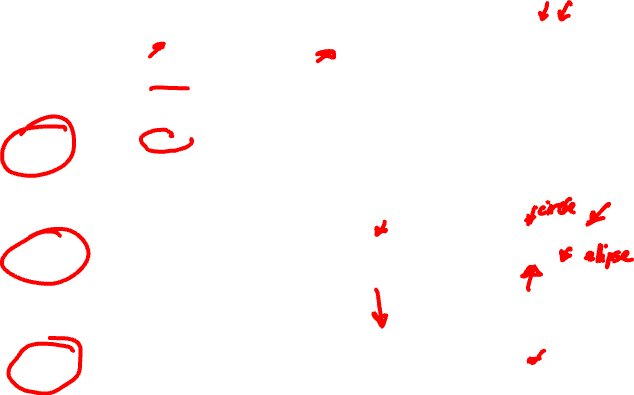 circle
elipse